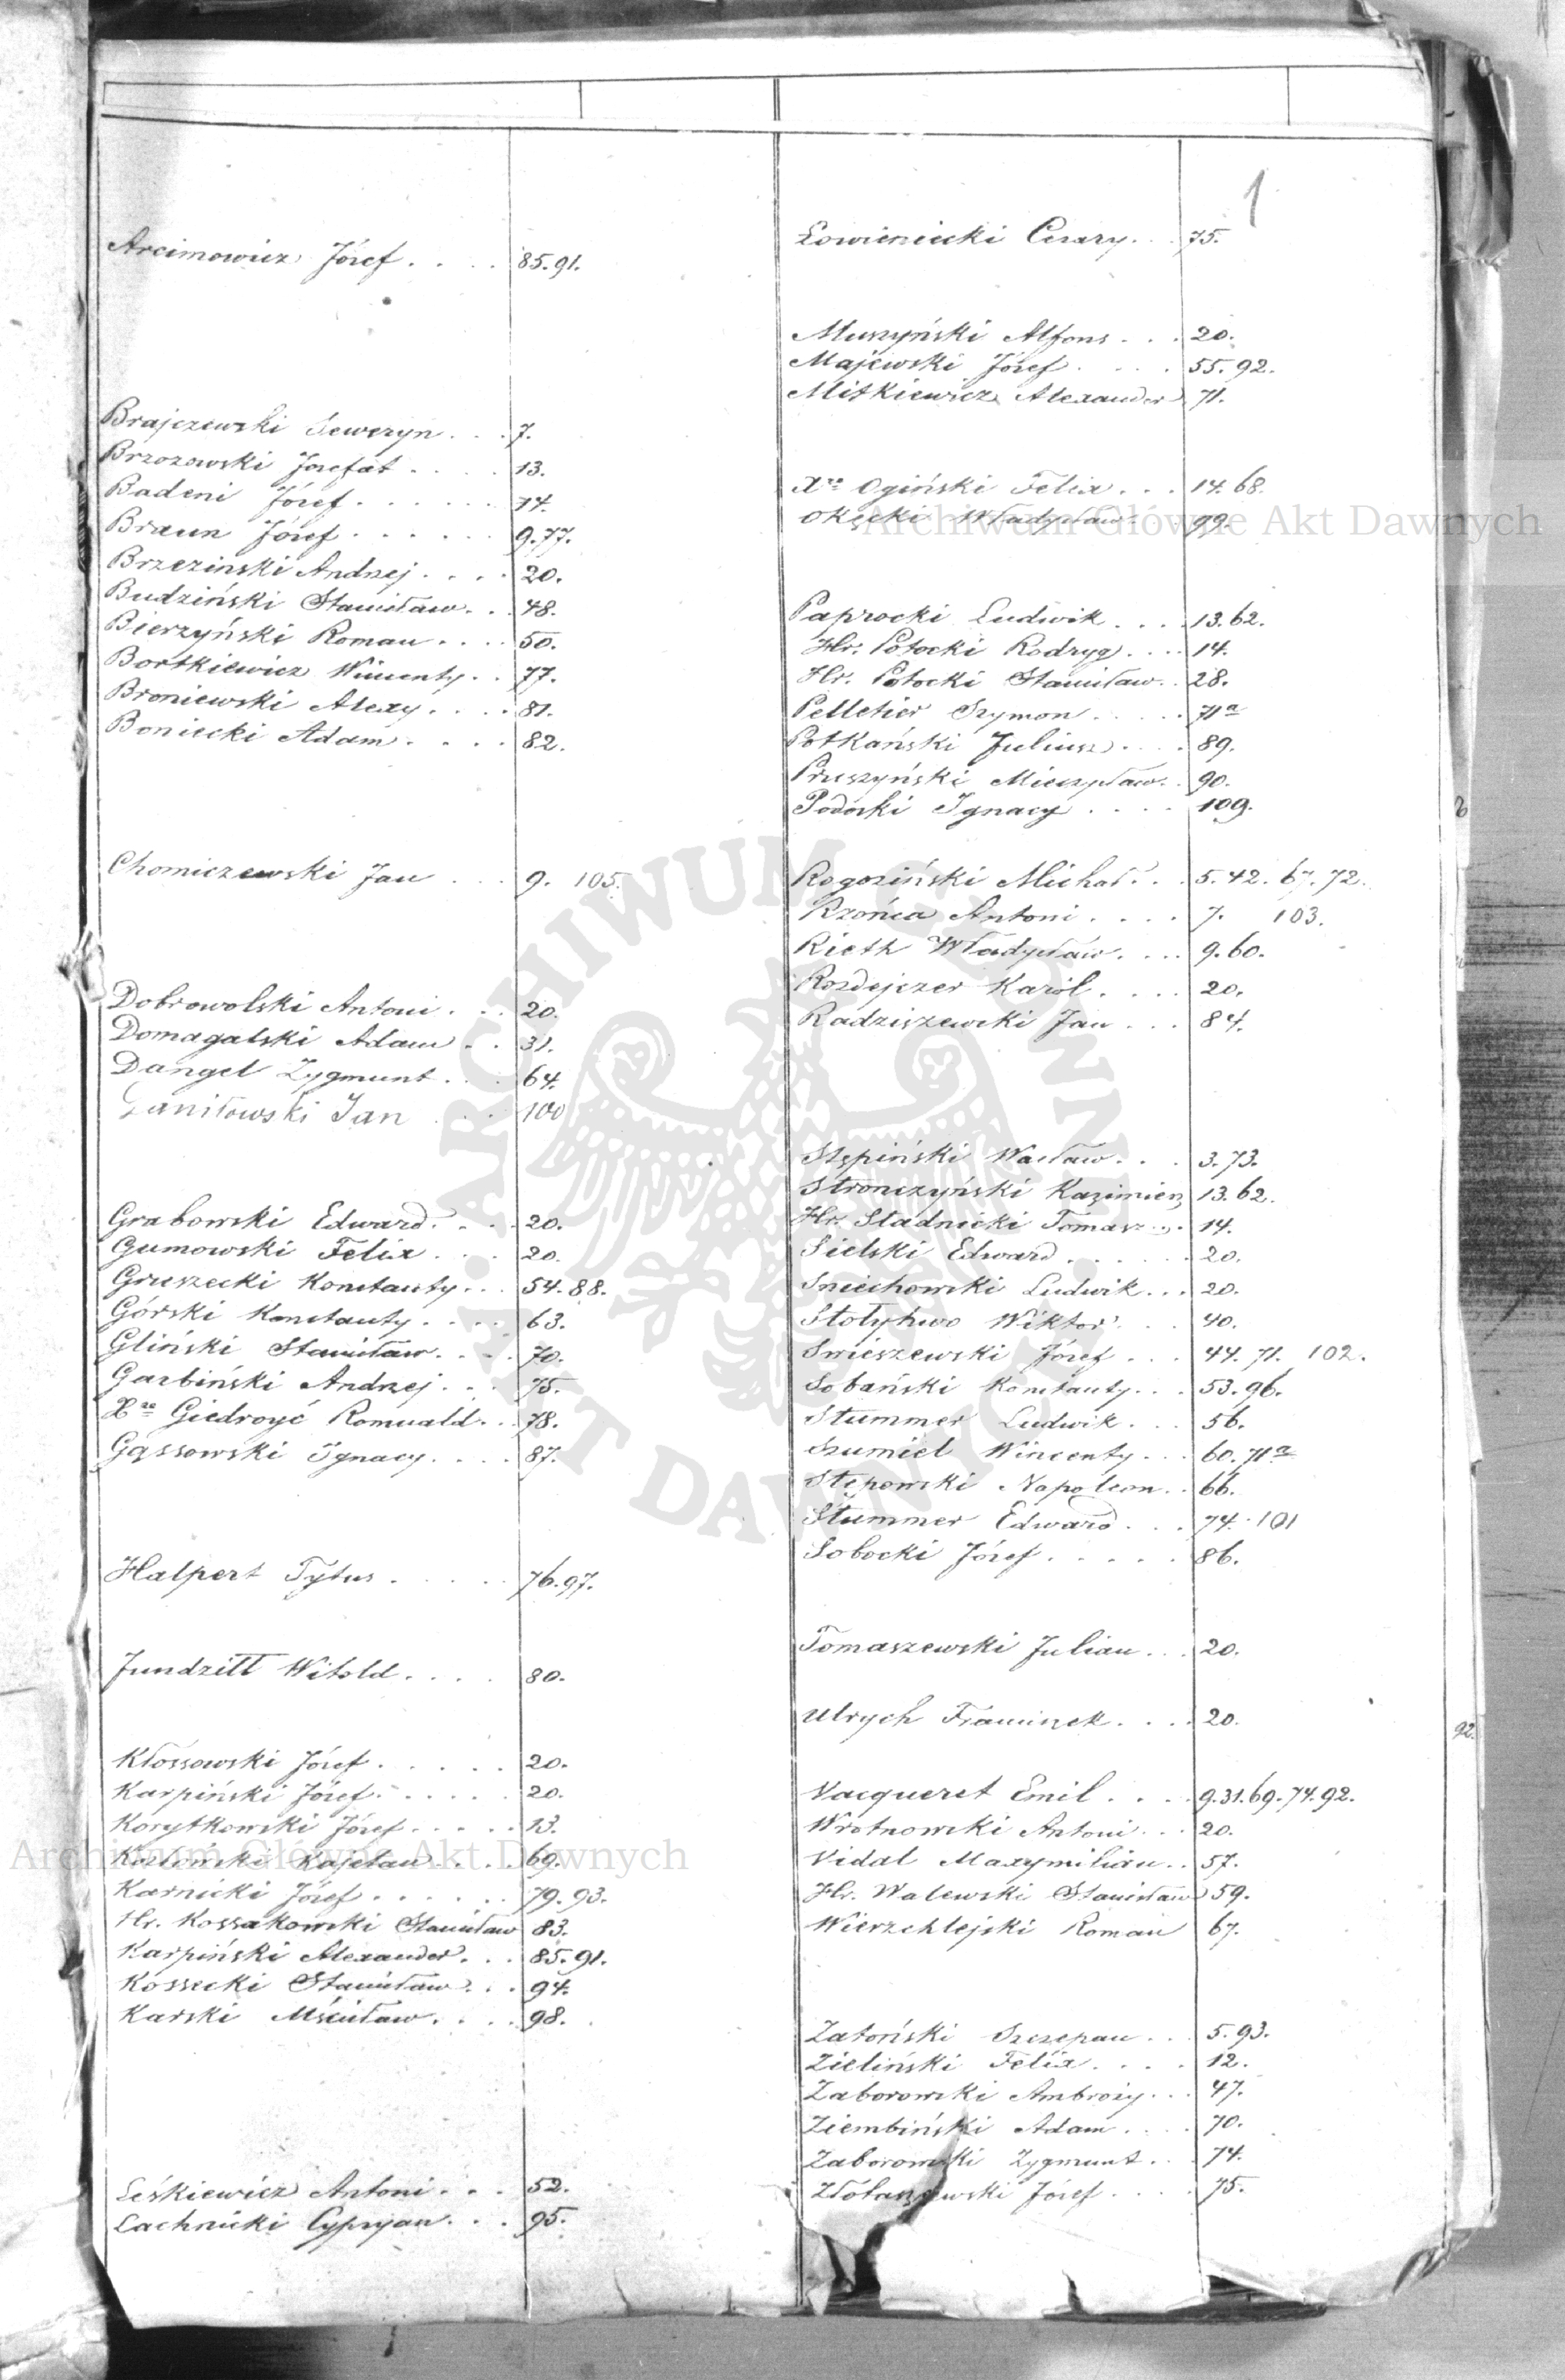 1
Arcimowicz Józef . . . . 85. 91.
Brajczewski Seweryn . . . 7.
Brzozowski Jozefat . . . . 13.
Badeni Józef . . . . . . 14.
Braun Józef . . . . . . 9. 77.
Brzezinski Andrzej . . . . 20.
Budziński Stanisław . . 48.
Bierzyński Roman . . . . 50.
Bortkiewicz Wincenty . . 77.
Broniewski Alexy . . . . 81.
Boniecki Adam . . . . 82.
Chomiczewski Jan . . . 9. 105.
Dobrowolski Antoni . . . 20.
Domagalski Adam . . 31.
Dangel Zygmunt . . . 64.
Daniłowski Jan . . . 100
Grabowski Edward . . . . 20.
Gumowski Felix . . . 20.
Gruszecki Konstanty . . . 54. 88.
Górski Konstanty . . . . 63.
Gliński Stanisław . . . . 70.
Garbiński Andrzej . . . 75.
Xże Giedroyć Romuald . . . 78.
Gąssowski Ignacy . . . . 87.
Halpert Tytus . . . . . 76. 97.
Jundziłł Witold . . . . 80.
Kłossowski Józef . . . . . 20.
Karpiński Józef . . . . . 20.
Korytkowski Józef . . . . . 13.
Kozłowski Kajetan . . . . 69.
Karnicki Józef . . . . . . 79. 93.
Hr. Kossakowski Stanisław 83.
Karpiński Alexander . . . 85. 91.
Kossecki Stanisław . . . 94.
Karski Mścisław . . . . 98.
Leśkiewicz Antoni . . . 52.
Lachnicki Cypryan . . . 95.
Łowieniecki Cezary . . . 75.
Muszyński Alfons . . . 20.
Majewski Józef . . . . 55. 92.
Mitkiewicz Alexander 71.
Xże Ogiński Felix . . . 14. 68.
Okęcki Władysław . . 99.
Paprocki Ludwik . . . . 13. 62.
Hr. Potocki Rodryg . . . . 14.
Hr. Potocki Stanisław . . 28.
Pelletier Szymon . . . . . 71a
Potkański Juliusz . . . . 89.
Pruszyński Mieczysław . . 90.
Podoski Ignacy . . . . 109.
Rogoziński Michał . . . 5. 42. 67. 72.
Rzońca Antoni . . . . 7. 103.
Rieth Władysław . . . . 9. 60.
Rozdejczer Karól . . . . 20.
Radziszewski Jan . . . 84.
Stępiński Wacław . . . 3. 73.
Stronczyński Kazimierz 13. 62.
Hr. Stadnicki Tomasz . . . 14.
Sielski Edward . . . . . . 20.
Sniechowski Ludwik . . . 20.
Stołyhwo Wiktor . . . 40.
Swieszewski Józef . . . 44. 71. 102.
Sobański Konstanty . . . 53. 96.
Stummer Ludwik . . . 56.
Szumiel Wincenty . . . 60. 71a
Stępowski Napoleon . . 66.
Stummer Edward . . . 74. 101
Sobocki Józef . . . . . 86.
Tomaszewski Julian . . . 20.
Ulrych Franciszek . . . . 20.
Vacqueret Emil . . . . 9. 31. 69. 74. 92.
Wrotnowski Antoni . . . 20.
Vidal Maxymilian . . 57.
Hr. Walewski Stanisław 59.
Wierzchlejski Roman 67.
Zatoński Szczepan . . . 5. 93.
Zieliński Felix . . . . 12.
Zaborowski Ambroży . . . 47.
Ziembiński Adam . . . . 70.
Zaborowski Zygmunt . . 74.
Józef . . . . 75.
92.
Archiwum Główne Akt Dawnych
Archiwum Główne Akt Dawnych